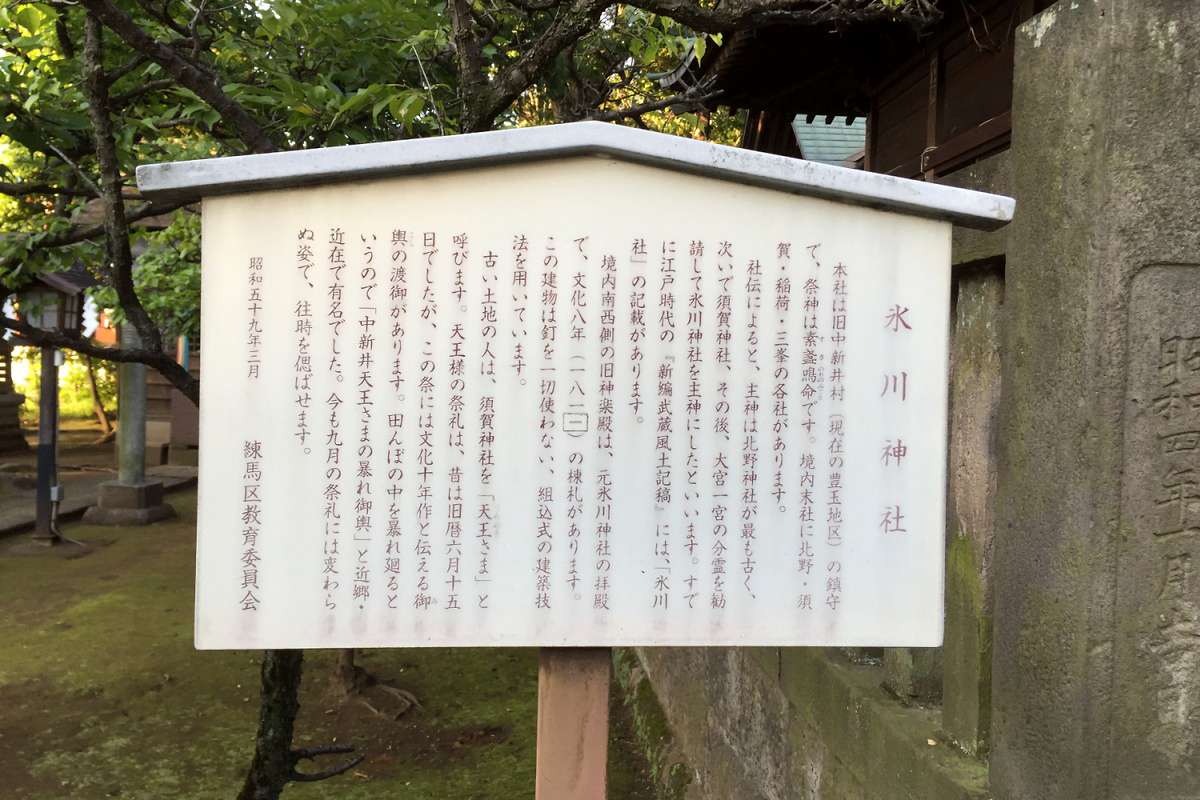 氷川神社
本社は旧中新井村〔現在の豊玉地区〕の鎮守
で、祭神は素盞嗚命です。境内末社に北野・須
賀・稲荷・三峯の各社があります。
社伝によると、主神は北野神社が最も古く、
次いで須賀神社、その後、大宮一宮の分霊を勧
請して氷川神社を主神にしたといいます。すで
に江戸時代の『新編武蔵風土記稿』には、「氷川
社」の記載があります。
境内南西側の旧神楽殿は、元氷川神社の拝殿
で、文化八年(一八一一)の棟札があります。
この建物は釘を一切使わない、組込式の建築技
法を用いています。
古い土地の人は、須賀神社を「天王さま」と
呼びます。天王様の祭礼は、昔は旧暦六月十五
日でしたが、この祭には文化十年作と伝える御
輿の渡御があります。田んぼの中を暴れ廻ると
いうので「中新井天王さまの暴れ御輿」と近郷・
近在で有名でした。今も九月の祭礼には変わら
ぬ姿で、往時を偲ばせます。
昭和五十九年三月
練馬区教育委員会
昭和四年十月